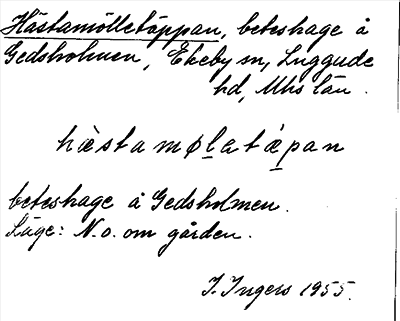 Hästamölletäppan, beteshage å
Gedsholmen, Ekeby sn, Luggude
hd, Mhs län.
hæ̀stamøl̲atǽ̲pan
beteshage å Gedsholmen.
Läge: N.o. om gården.
I. Ingers 1955.